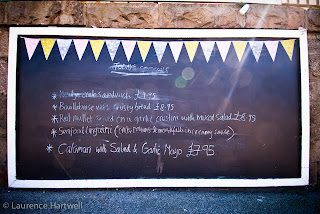 Today's Specials
* crab sandwich £7.95
* Bouillabaisse with crusty bread £8.95
* Red mullet served on a garlic crostini with mixed salad £8.95
* Seafood linguine (
* Calamari with Salad & Garlic Mayo £7.95
© Laurence Hartwell